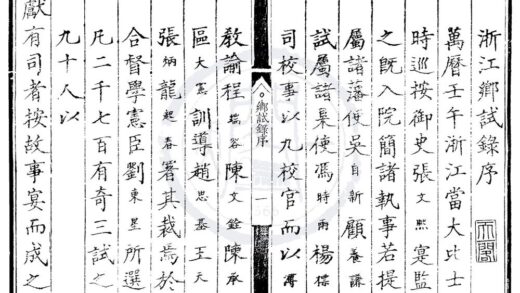 浙江鄉試錄序
萬曆壬午浙江當大比士
時巡按御史張文熙寔監
之既入院簡諸執事若提
屬諸藩使吳自新顧養謙
試屬諸臬使馮時雨楊標
司校事以九校官而以薄
鄉試錄序 一
教諭程端容陳文銓陳承
區大憲訓導趙思基王天
張炳龍起春署其裁焉於
合督學憲臣劉東星所選
凡二千七百有奇三試之
九十人以
獻有司者按故事宴而成之